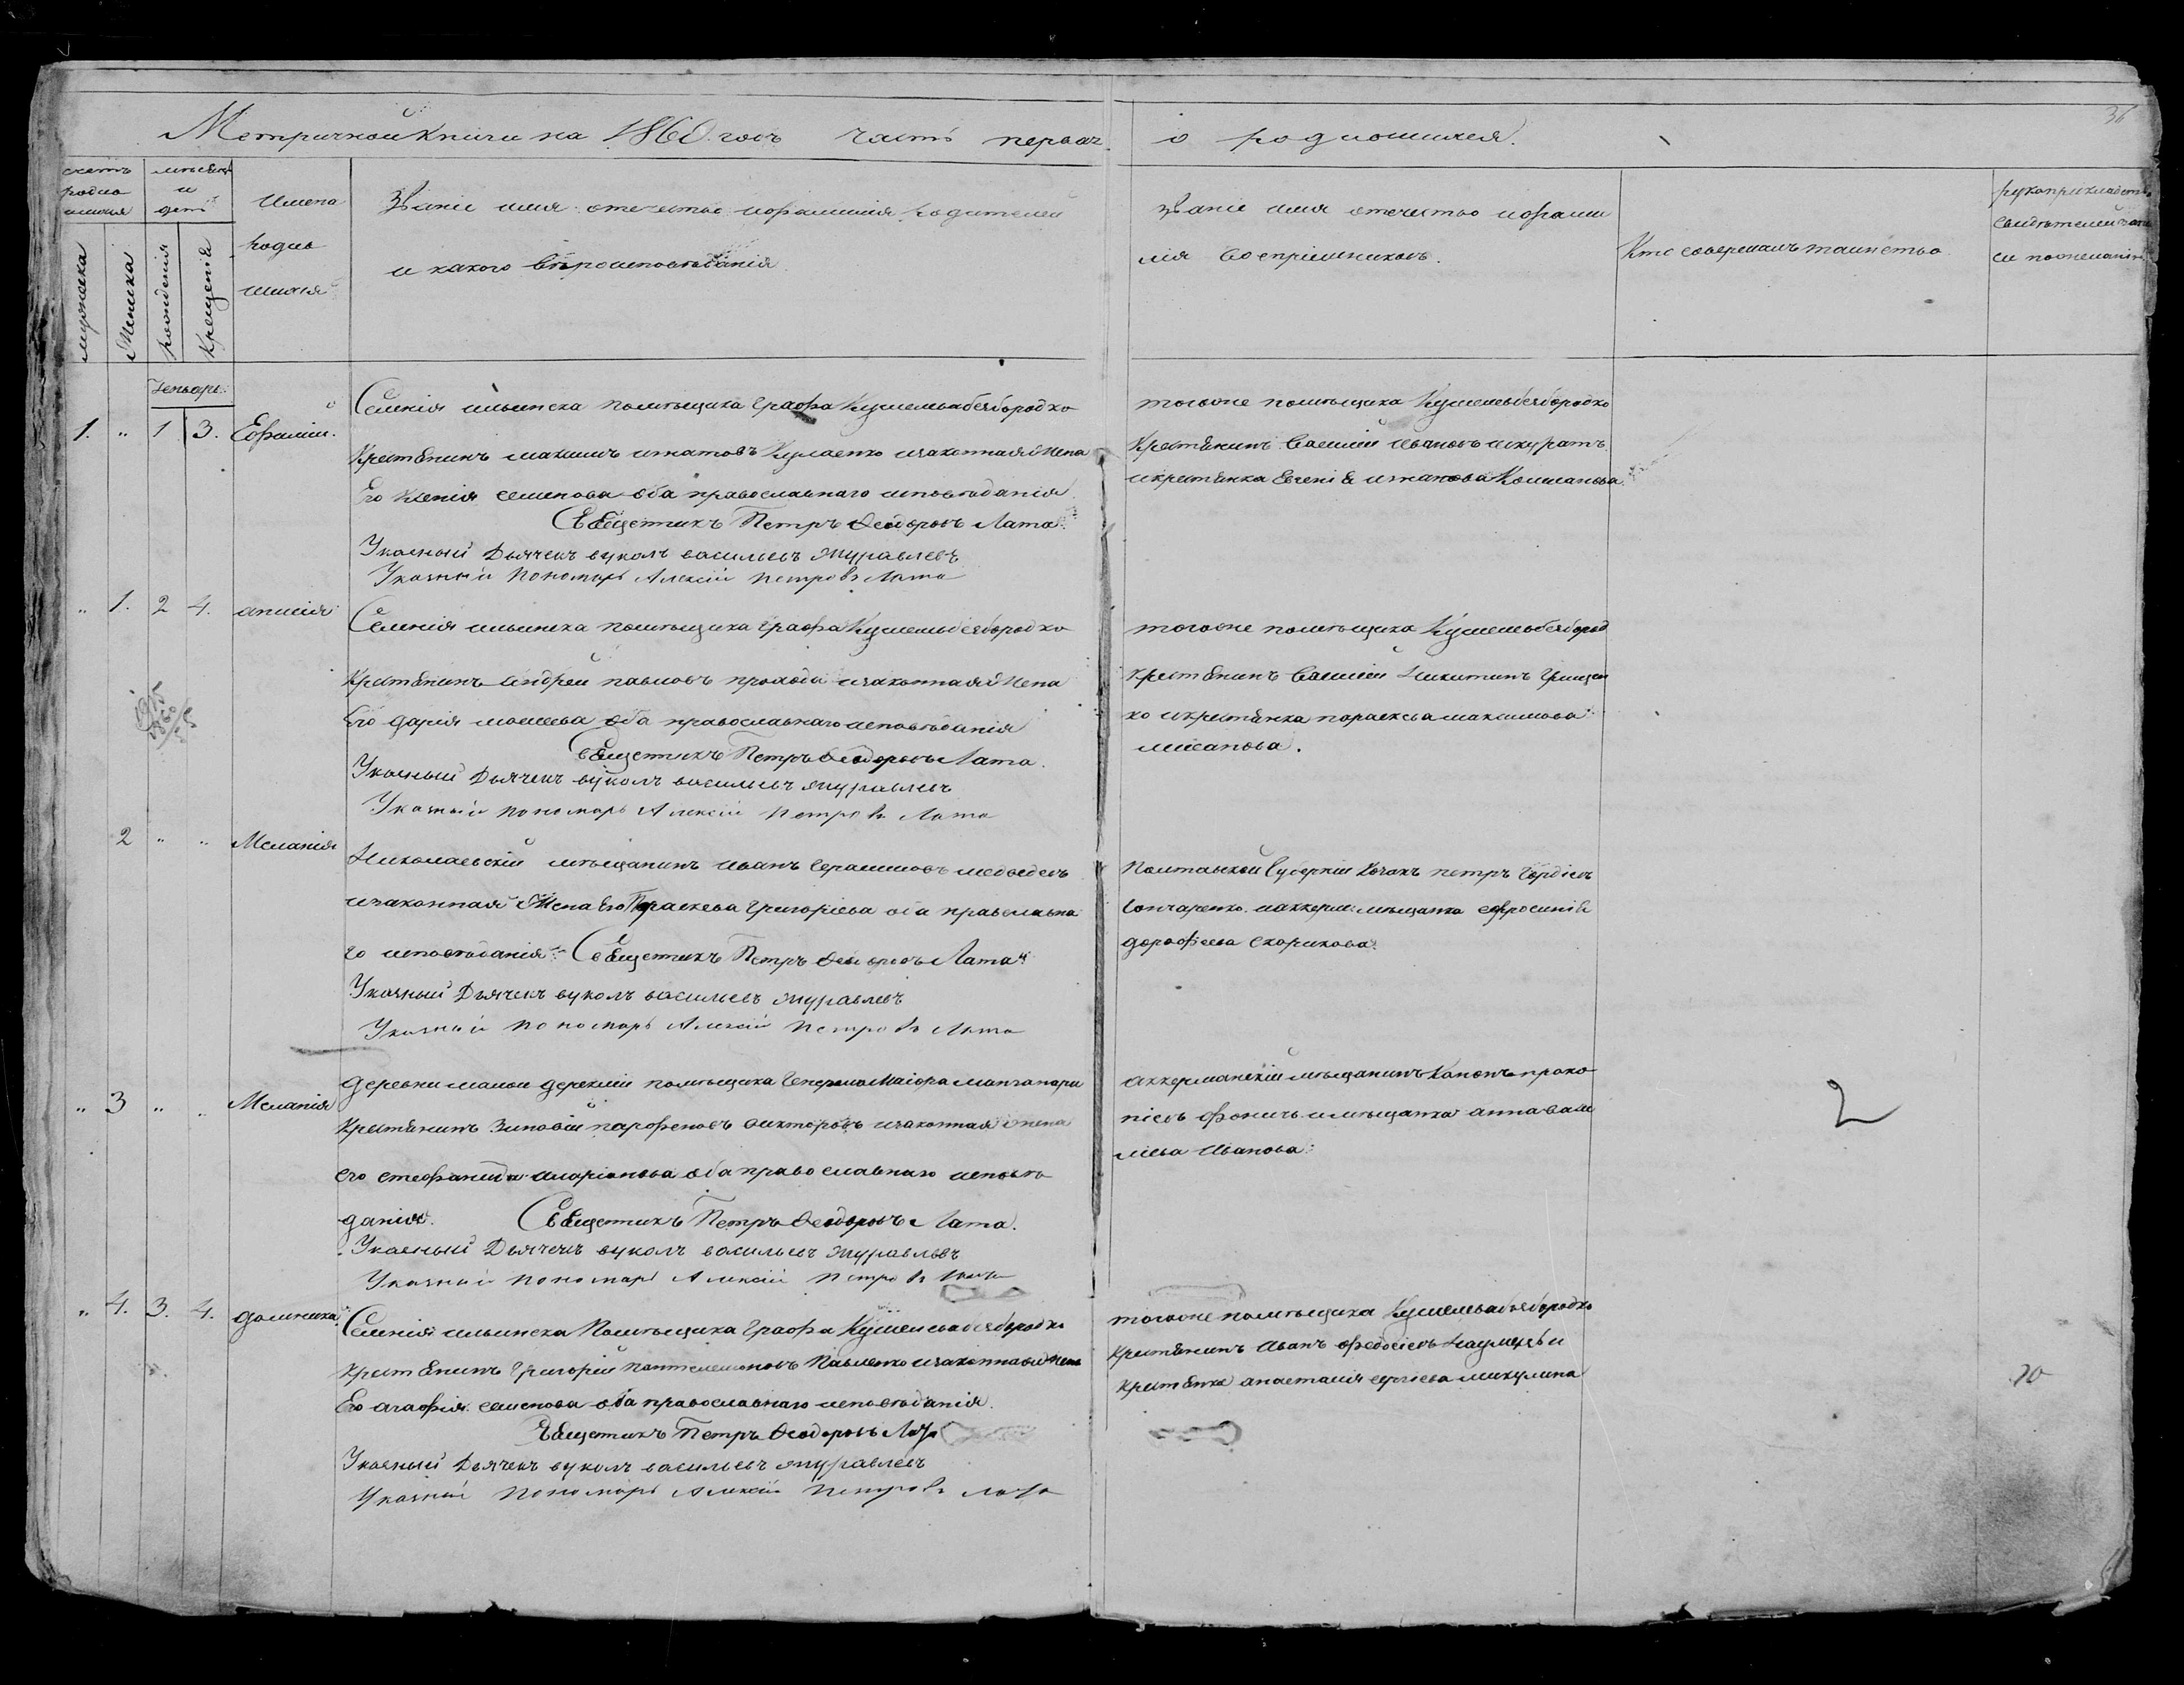 36
Метричной книги на 1860. годъ часть первая. о родившихся.
счетъ родив шихся
мѣсяцъ и день
мужеска
Женска
рожденія
Крещенія
Имена
родив
шихся
Званіе имя отечество и фамилія родителей
и какого вѣроисповѣданія.
Званіе имя отечество и фами
лія Воспріемниковъ.
Кто совершалъ таинство
рукоприкладство
свидѣтелей
по желанію
Генварь:
1. " 1 3. Ефимій.
Селенія ильинска помѣщика Графа Кушелевабезбородко
Крестянинъ максимъ игнатовъ изаконная Жена
Его Ксенія семенова оба православнаго исповѣданія
Священникъ Петръ Ѳеодоровъ Лата
Указный Дьячекъ вуколъ васильевъ журавлевъ
Указный Пономарь Алексій Петровъ Лата
тогоже помѣщика Кушелевабезбородко
Крестянинъ Василій Ивановъ шкуратъ
икрестянка Евгенія игнатова
" 1. 2 4. анисія
Селенія ильинска помѣщика Графа Кушелевабезбородко
Крестянинъ Андрей павловъ изаконная Жена
Его дарія моисеева оба православнаго исповѣданія
Священникъ Петръ Ѳеодоровъ Лата.
Указный Дьячекъ вуколъ васильевъ журавлевъ
Указный пономарь Алексій Петровъ Лата
тогоже помѣщика Кушелевабезбород
Крестянинъ Василій Никитинъ Грищен
ко икрестянка параскева максимова
2 " " Меланія
Николаевскій мѣщанинъ иванъ Герасимовъ медведевъ
изаконная Жена Его Параскева Григоріева оба православна
го исповѣданія Священникъ Петръ Ѳеодоровъ Лата
Указный Дьячекъ вуколъ васильевъ журавлевъ
Указный Пономарь Алексій Петровъ Лата
Полтавской Губерніи Козакъ петръ Гордіевъ
Гончаренко. иаккерм: мѣщанка евфросинія
дорофеева скорикова.
" 3 " " Меланія
деревни малои дерекліи помѣщика Генералъ Маіора манганари
Крестянинъ Зиновій парфеновъ викторовъ изаконная жена
его стефанида иларіонова оба православнаго исповѣ
данія. Священникъ Петръ Ѳеодоровъ Лата.
Указный Дьячекъ вуколъ васильевъ журавлевъ
Указный пономарь Алексій Петровъ Лата
аккерманскій мѣщанинъ Кононъ проко
піевъ фоничь имѣщанка анна васи
ліева Иванова:
2
" 4. 3. 4. домникія
Селенія ильинска Помѣщика Графа Кушелевабезбородко
Крестянинъ Григорій Пантелеимоновъ Павленко изаконная Жена
Его агафія семенова оба православнаго исповѣданія.
Священникъ Петръ Ѳеодоровъ Лата
Указный Дьячекъ вуколъ васильевъ журавлевъ
Указный Пономарь Алексій Петровъ Лата
тогоже помѣщика Кушелевабезбородко
Крестянинъ Иванъ федосіевъ и
Крестянка анастасія сергіева микулина